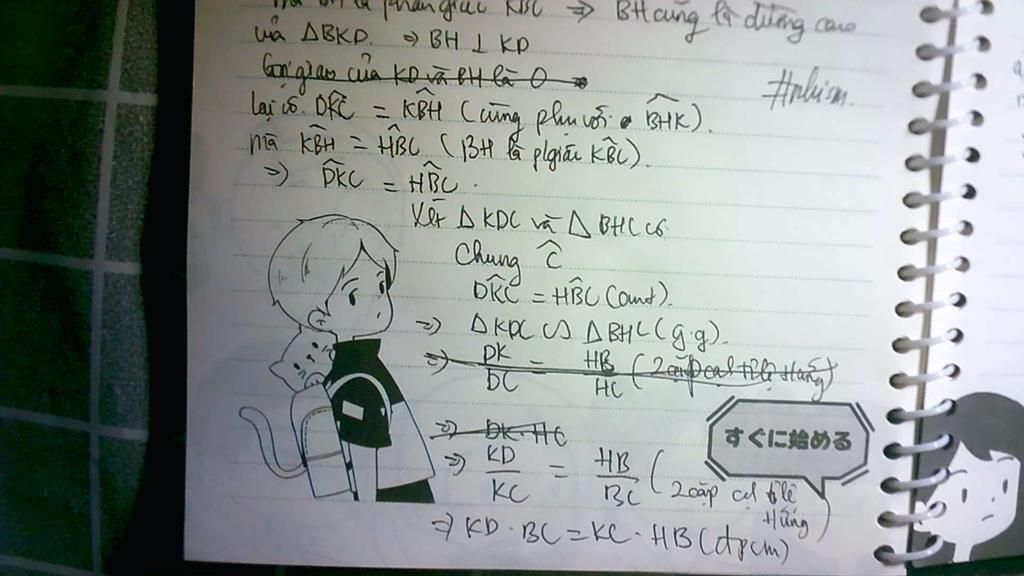 mà BH là phân giác KBC ⇒ BH cũng là đường cao
của ΔBKD. ⇒ BH ⊥ KD
Gọi giao của KD và BH là O
#nhism.
lại có. DKC = KBH (cùng phụ với BHK).
mà KBH = HBC (BH là p/giác KBC).
⇒ DKC = HBC.
Xét ΔKDC và ΔBHC có.
Chung C
DKC = HBC (cmt).
⇒ ΔKDC ∽ ΔBHC (g.g).
⇒ DK/DC = HB/HC (2 cặp cạnh tỉ lệ tứng)
⇒ DK·HC
⇒ KD/KC = HB/BC (2 cặp cạh tỉ lệ
tứng)
すぐに始める
⇒ KD·BC = KC·HB (đpcm)